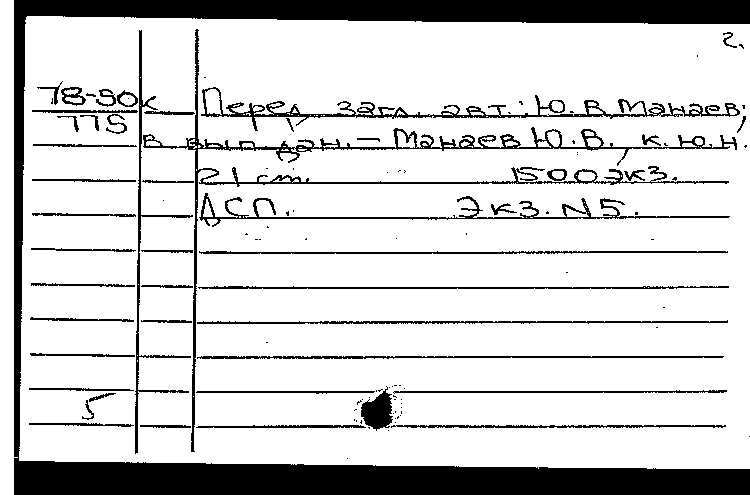 2.
78-90к Перед загл. авт.: Ю.В. Манаев;
775
в вып. дан. — Манаев Ю.В., к.ю.н.
21 cm. 1500 экз.
ДСП. Экз. N5.
5